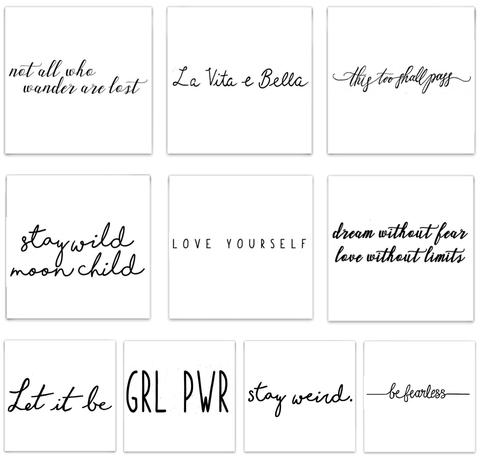 not all who
wander are lost
La Vita e Bella
this too shall pass
stay wild
moon child
LOVE YOURSELF
dream without fear
love without limits
Let it be
GRL PWR
stay weird.
be fearless